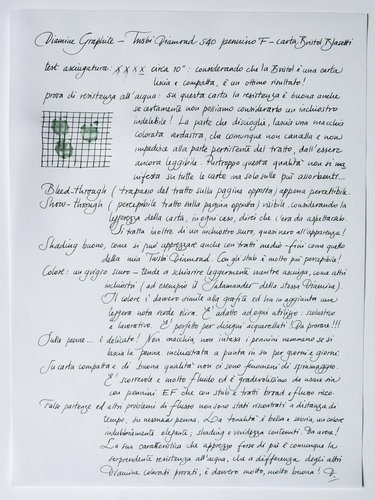 Diamine Graphite - Twsbi Diamond 540 pennino F - carta Bristol Blasetti
test asciugatura: X X X X circa 10": considerando che la Bristol è una carta
liscia e compatta, è un ottimo risultato!
prova di resistenza all'acqua: su questa carta la resistenza è buona anche
se certamente non possiamo considerarlo un inchiostro
indelebile! La parte che discioglie, lascia una macchia
colorata verdastra, che comunque non cancella e non
impedisce alla parte persistente del tratto, dall'essere
ancora leggibile. Purtroppo questa qualità non si ma
nifesta su tutte le carte ma solo sulle più assorbenti...
Bleed-through (trapasso del tratto sulla pagina opposta) appena percettibile.
Show-through (percepibile tratto sulla pagina opposta) visibile, considerando la
leggerezza della carta, in ogni caso, direi che c'era da aspettarselo.
Si tratta inoltre di un inchiostro scuro, quasi nero all'apparenza!
Shading buono, come si può apprezzare anche con tratti medio-fini come quello
della mia Twsbi Diamond. Con gli stub è molto più percepibile!
Colore: un grigio scuro - tende a schiarire leggermente mentre asciuga, come altri
inchiostri (ad esempio il "Salamander" della stessa Diamine).
Il colore è davvero simile alla grafite ed ha in aggiunta una
leggera nota verde oliva. È adatto ad ogni utilizzo: scolastico
e lavorativo. È perfetto per disegni acquerellati! Da provare!!!
Sulle penne... è delicato! Non macchia, non intasa i pennini nemmeno se si
lascia la penna inchiostrata a punta in su per giorni e giorni.
Su carta compatta e di buona qualità non ci sono fenomeni di spiumaggio.
È scorrevole e molto fluido ed è gradevolissimo da usare sia
con pennini EF che con stub e tratti broad e flusso ricco.
False partenze ed altri problemi di flusso non sono stati riscontrati a distanza di
tempo, su nessuna penna. La tonalità è bella e sobria, un colore
indubbiamente elegante; shading e vividezza contenuti. Da avere!
La sua caratteristica che apprezzo forse di più è comunque la
sorprendente resistenza all'acqua, che a differenza degli altri
Diamine colorati provati, è davvero molto, molto buona!